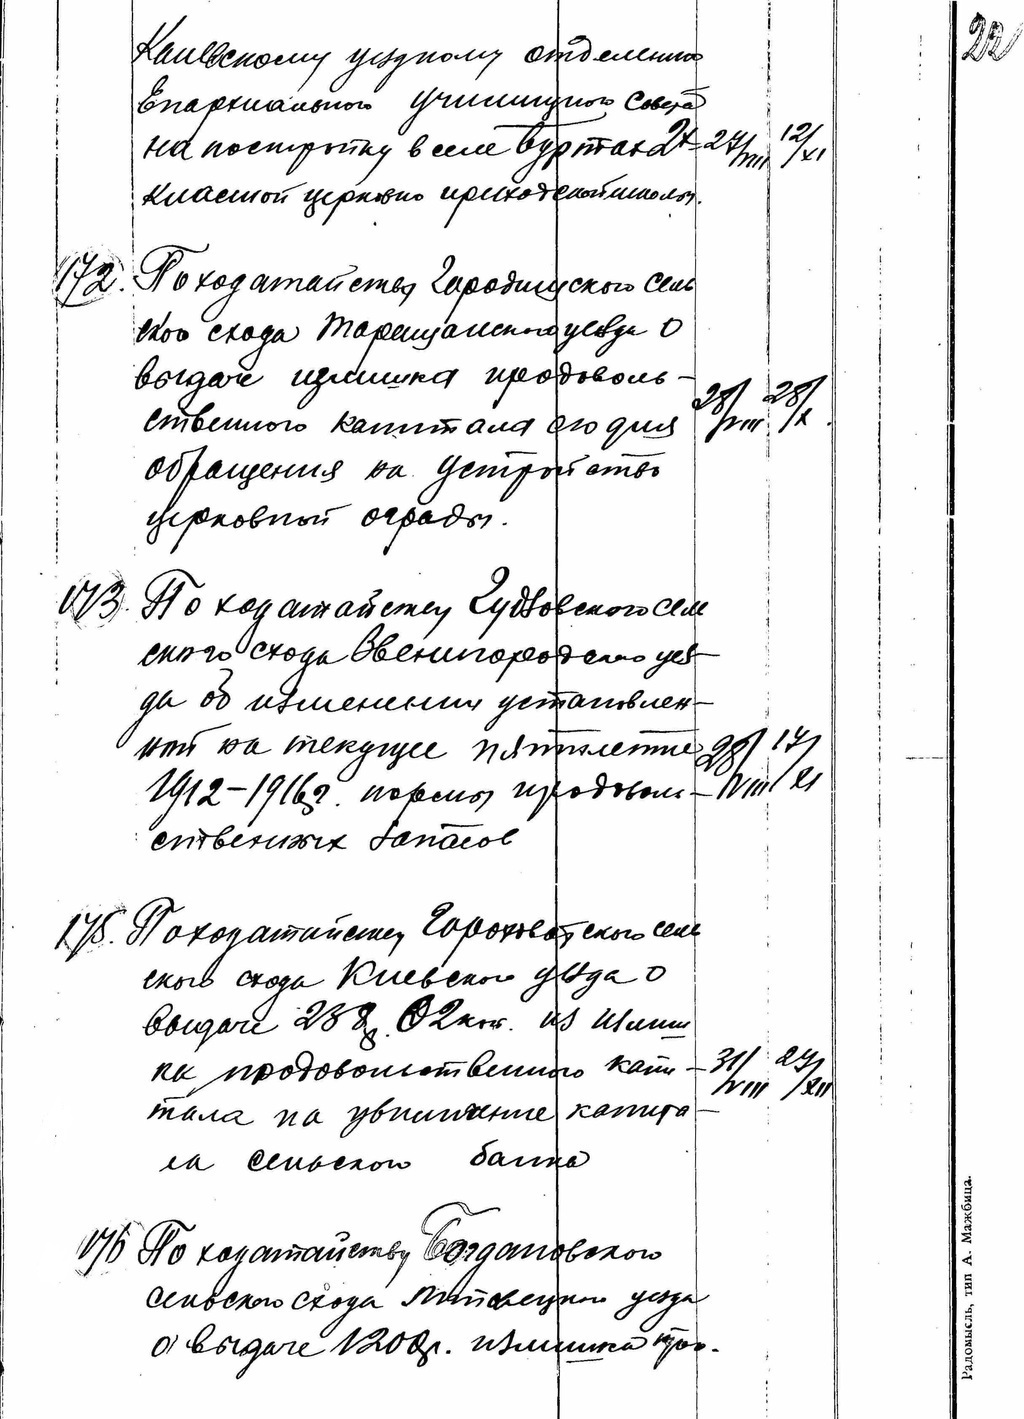 22
Каневскому уездному отделению
Епархиального училищного Совета
на постройку в селе Буртах 2х 27/VIII 12/XI
класной церковно приходской школы.
172. По ходатайству Городищского сель
ского схода Таращанского уезда о
выдаче излишка продоволь-
ственного капитала его для 28/VIII 28/X
обращения на устройство
церковной ограды.
173. По ходатайству Гудзовского сель
ского схода Звенигородского уез-
да об изменении установлен-
ной на текущее пятилетие 28/VIII 17/XI
1912-1916г. нормы продоволь-
ственных запасов
175. По ходатайству Гороховатского сель
ского схода Киевского уезда о
выдаче 238р. 02 коп. из излиш
ка продовольственного капи- 31/VIII 27/XII
тала на увеличение капита-
ла сельского банка
176 По ходатайству Богдановского
сельского схода Липовецкого уезда
о выдаче 1200р. излишка про-
Радомысль, тип А. Мажбица.